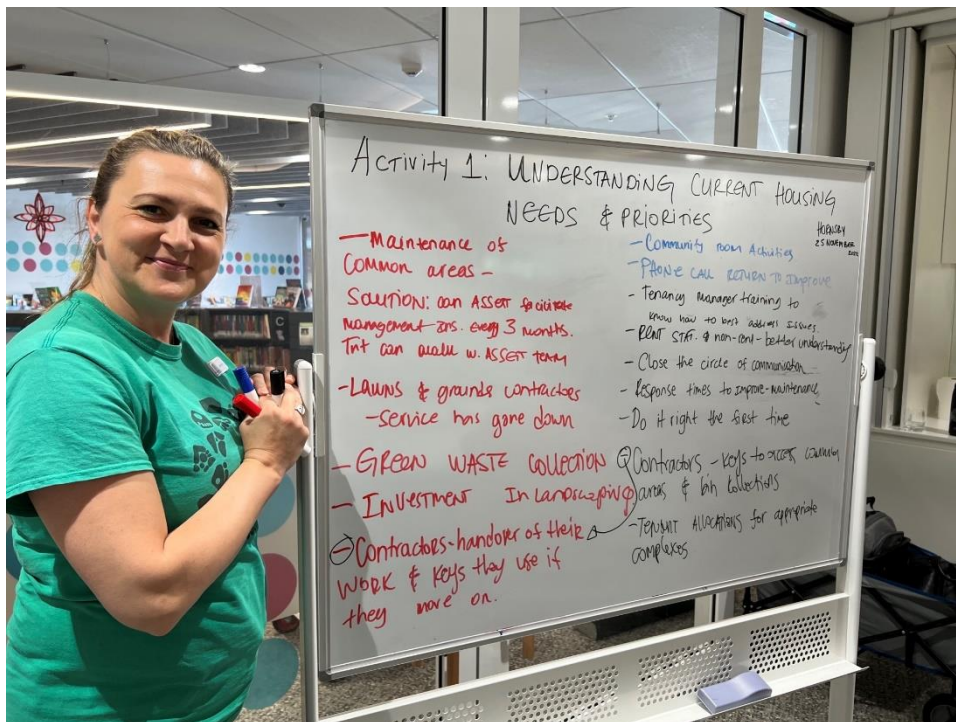 Activity 1: UNDERSTANDING CURRENT HOUSING
NEEDS & PRIORITIES
HORNSBY
25 NOVEMBER
— Maintenance of
Common areas –
SOLUTION: can ASSET facilitate
management ins. every 3 months.
Tnt can walk w. ASSET team
- Lawns & grounds contractors
- service has gone down
- GREEN WASTE COLLECTION
- INVESTMENT In Landscaping
- Contractors - handover of their
WORK & keys they use if
they move on.
- Community room Activities
- PHONE CALL RETURN TO IMPROVE
- Tenancy manager training to
know how to best address issues.
- RENT STAT. & non-rent - better understanding
- Close the circle of communication
- Response times to improve - maintenance
- Do it right the first time
- Contractors - keys to access
areas & bin collections
- TENANT ALLOCATIONS for appropriate
complexes